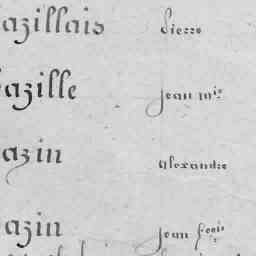 azillais Pierre
azille Jean m.ie
azin Alexandre
azin Jean f.cois